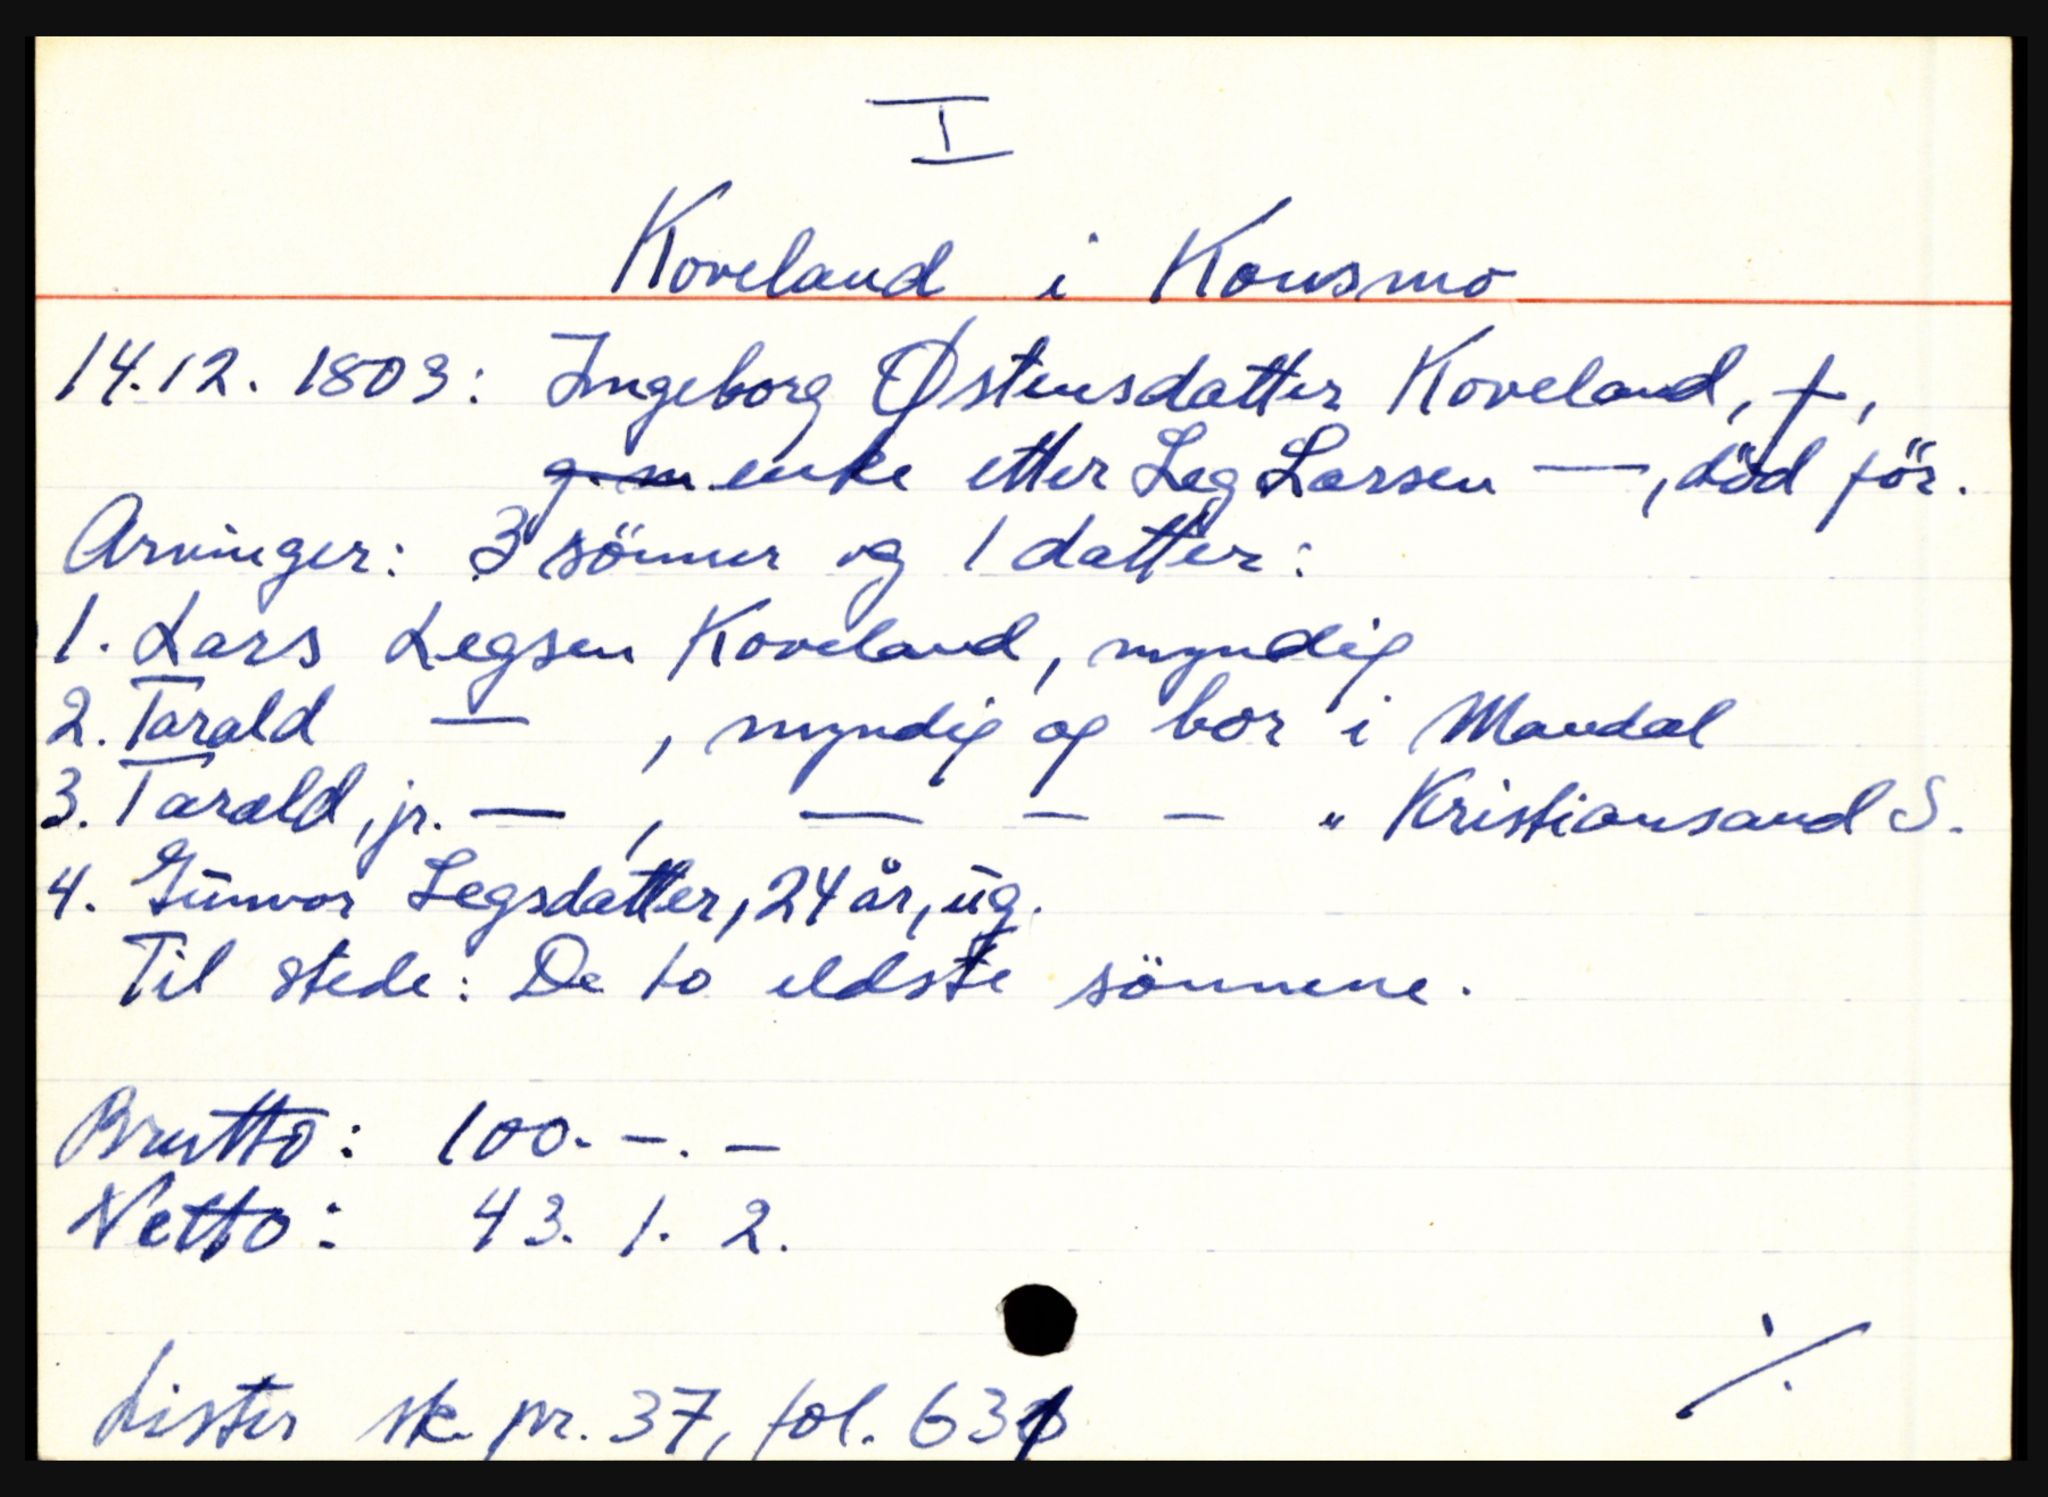 I
Koveland i Konsmo
14.12. 1803: Ingeborg Østensdatter Koveland, †,
g. m. enke etter Leg Larsen —, död för.
Arvinger: 3 sönner og 1 datter:
1. Lars Legsen Koveland, myndig
2. Tarald — , myndig og bor i Mandal
3. Tarald, jr. — , — — — " Kristiansand S.
4. Gunvor Legsdatter, 24 år, ug.
Til stede: De to eldste sönnene.
Brutto: 100. –. –
Netto: 43. 1. 2.
Lister sk. pr. 37, fol. 631
·/.